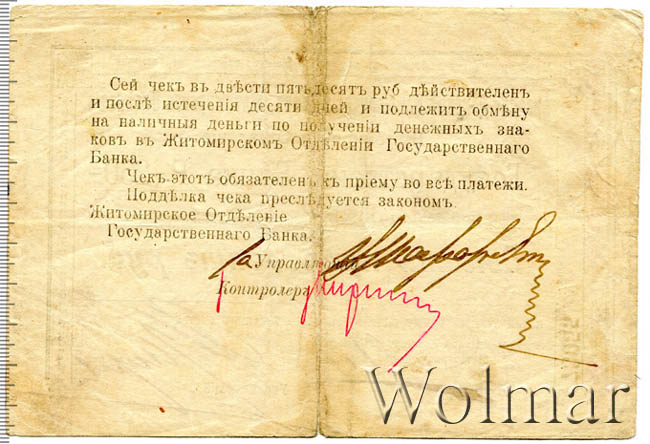 Сей чекъ въ двѣсти пятьдесятъ руб дѣйствителенъ
и послѣ истеченія десяти дней и подлежитъ обмѣну
на наличныя деньги по полученіи денежныхъ зна-
ковъ въ Житомирскомъ Отдѣленіи Государственнаго
Банка.
Чекъ этотъ обязателенъ къ пріему во всѣ платежи.
Поддѣлка чека преслѣдуется закономъ.
Житомирское Отдѣленіе
Государственнаго Банка.
За Управляющій
Контролеръ
Wolmar